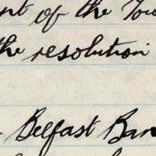 nt of the Tow
the resolution
Belfast Ban